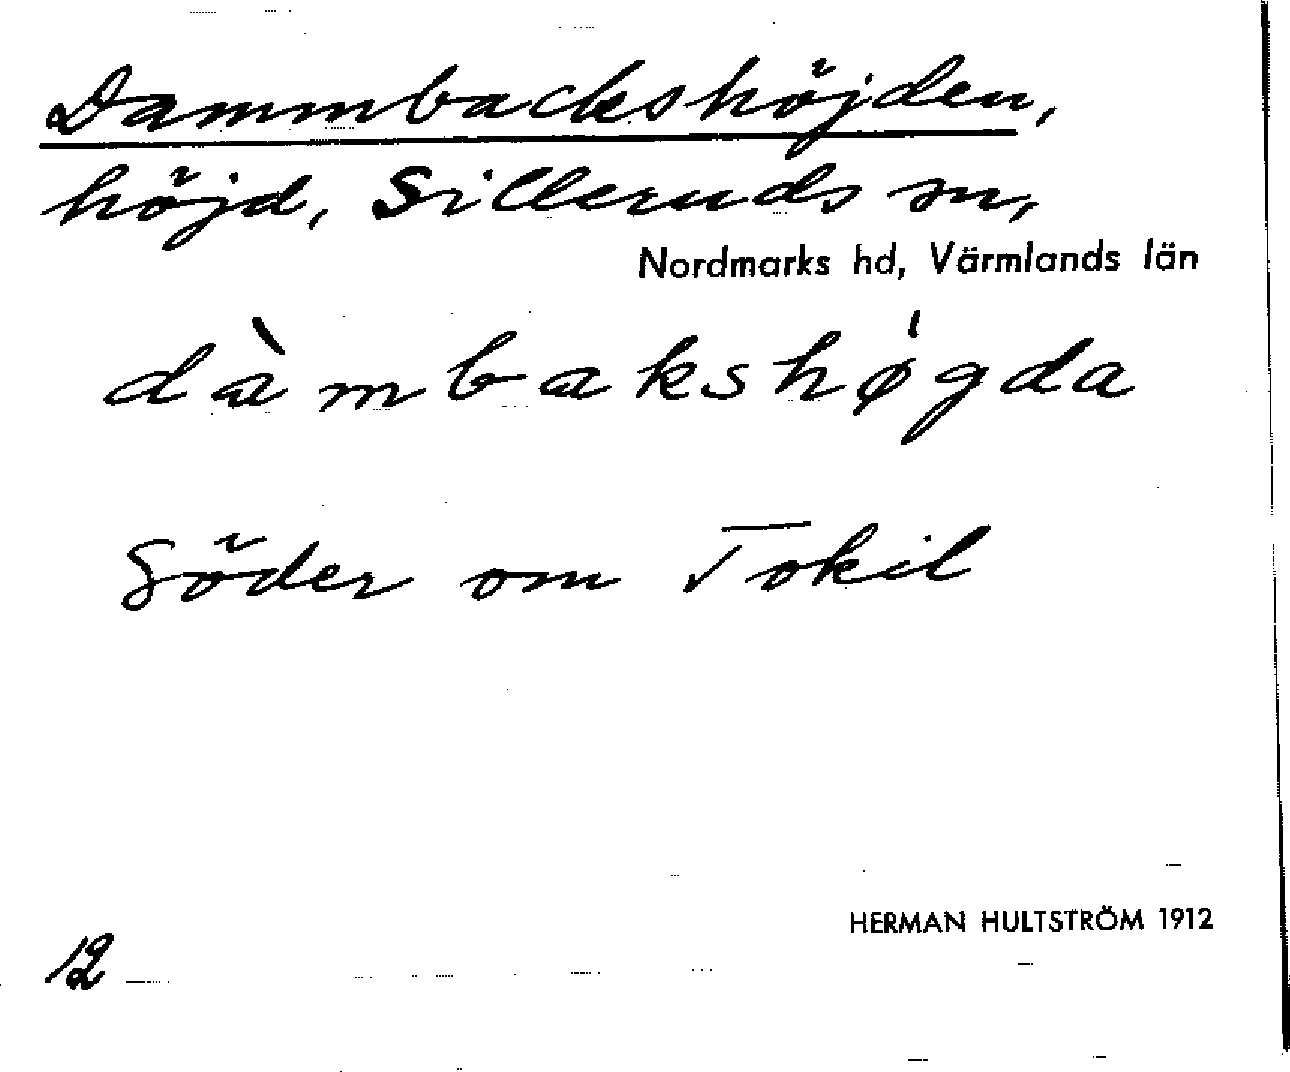 Dammbackshöjden,
höjd, Silleruds sn,
Nordmarks hd, Värmlands län
dàmbakshǿgda
Söder om Tokil
HERMAN HULTSTRÖM 1912
12